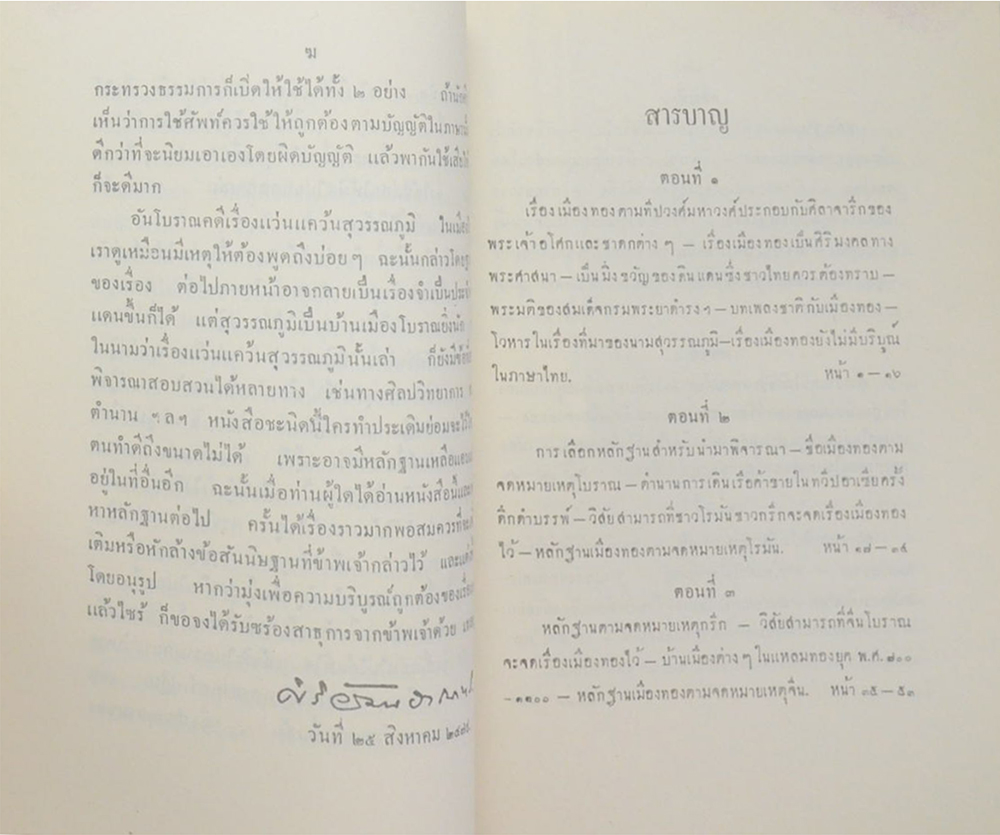 ฆ
กระทรวงธรรมการก็เปิดให้ใช้ได้ทั้ง ๒ อย่าง
เห็นว่าการใช้ศัพท์ควรใช้ให้ถูกต้องตามบัญญัติในภาษา
ดีกว่าที่จะนิยมเอาเองโดยผิดบัญญัติ แล้วพากันใช้
ก็จะดีมาก
อันโบราณคดีเรื่องแว่นแคว้นสุวรรณภูมิ
เราดูเหมือนมีเหตุให้ต้องพูดถึงบ่อย ๆ ฉะนั้นกล่าวโดย
ของเรื่อง ต่อไปภายหน้าอาจกลายเป็นเรื่องจำเป็น
แดนขึ้นก็ได้ แต่สุวรรณภูมิเป็นบ้านเมืองโบราณยิ่งนัก
ในนามว่าเรื่องแว่นแคว้นสุวรรณภูมินั้นเล่า ก็ยังมี
พิจารณาสอบสวนได้หลายทาง เช่นทางศิลปวิทยาการ
ตำนาน ฯลฯ หนังสือชะนิดนี้ใครทำประเดิมย่อมจะ
ตนทำดีถึงขนาดไม่ได้ เพราะอาจมีหลักฐานเหลือ
อยู่ในที่อื่นอีก ฉะนั้นเมื่อท่านผู้ใดได้อ่านหนังสือนี้
หาหลักฐานต่อไป ครั้นได้เรื่องราวมากพอสมควรที่จะ
เติมหรือหักล้างข้อสันนิษฐานที่ข้าพเจ้ากล่าวไว้
โดยอนุรูป หากว่ามุ่งเพื่อความบริบูรณ์ถูกต้องของ
แล้วไซร้ ก็ขอจงได้รับซร้องสาธุการจากข้าพเจ้าด้วย
วันที่ ๒๕ สิงหาคม
สารบาญ
ตอนที่ ๑
เรื่องเมืองทองตามทีปวงศ์มหาวงศ์ประกอบกับศิลาจารึกของ
พระเจ้าอโศกและชาดกต่าง ๆ – เรื่องเมืองทองเป็นศิริมงคลทาง
พระศาสนา – เป็นมิ่งขวัญของดินแดนซึ่งชาวไทยควรต้องทราบ –
พระมติของสมเด็จกรมพระยาดำรง ฯ – บทเพลงชาติกับเมืองทอง –
โวหารในเรื่องที่มาของนามสุวรรณภูมิ–เรื่องเมืองทองยังไม่มีบริบูณ์
ในภาษาไทย. หน้า ๑ – ๑๖
ตอนที่ ๒
การเลือกหลักฐานสำหรับนำมาพิจารณา – ชื่อเมืองทองตาม
จดหมายเหตุโบราณ – ตำนานการเดินเรือค้าขายในทวีปอาเซียครั้ง
ดึกดำบรรพ์ – วิสัยสามารถที่ชาวโรมันชาวกรีกจะจดเรื่องเมืองทอง
ไว้ – หลักฐานเมืองทองตามจดหมายเหตุโรมัน. หน้า ๑๗ – ๓๔
ตอนที่ ๓
หลักฐานตามจดหมายเหตุกรีก – วิสัยสามารถที่จีนโบราณ
จะจดเรื่องเมืองทองไว้ – บ้านเมืองต่าง ๆ ในแหลมทองยุค พ.ศ. ๗๐๐
– ๑๑๐๐ – หลักฐานเมืองทองตามจดหมายเหตุจีน. หน้า ๓๕ – ๕๓